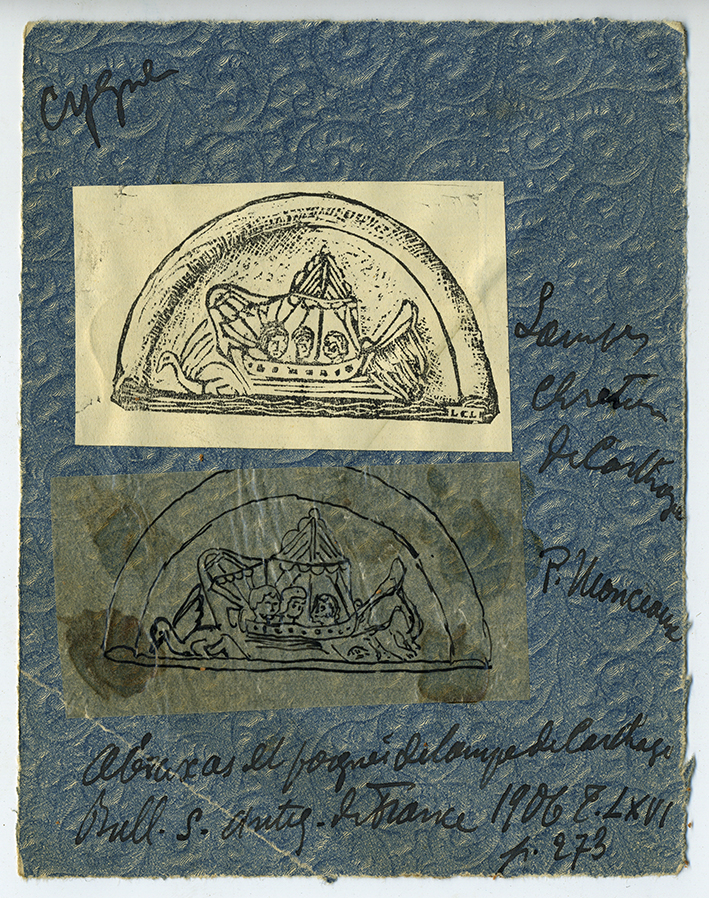 Cygne
Lampes
chretien
de Carthage
P. Monceaux
Abraxas et poignée de lampe de Carthage
Bull. S. Antiq. de France 1906 T. LXVI
p. 273